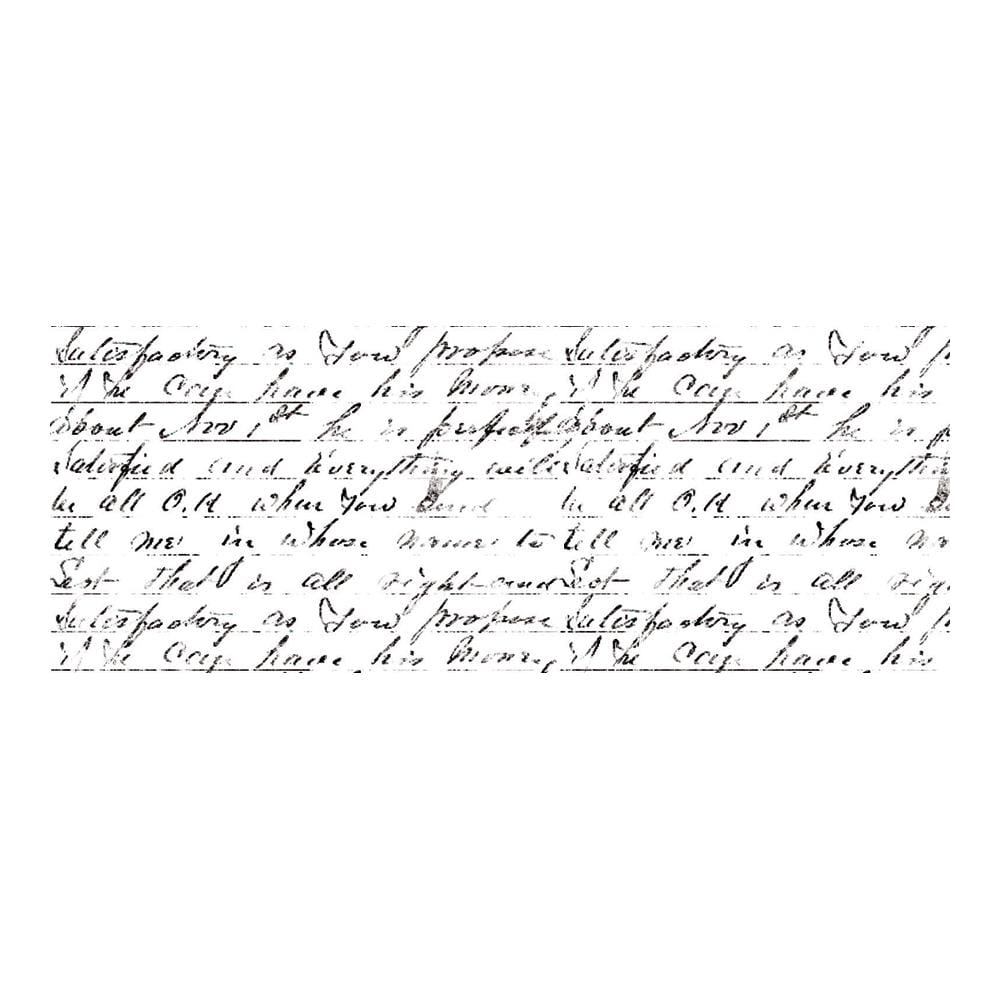 Satisfactory as You propose Satisfactory as You
if he can have his Money, if he can have his
about Nov 1st he is perfectly about Nov 1st he is
Satisfied and Everything will Satisfied and Everything
be all O.K when You send be all O.K when You
tell me in whose name to tell me in whose
that is all right and that is all
Satisfactory as You propose Satisfactory as You
if he can have his Money, if he can have his